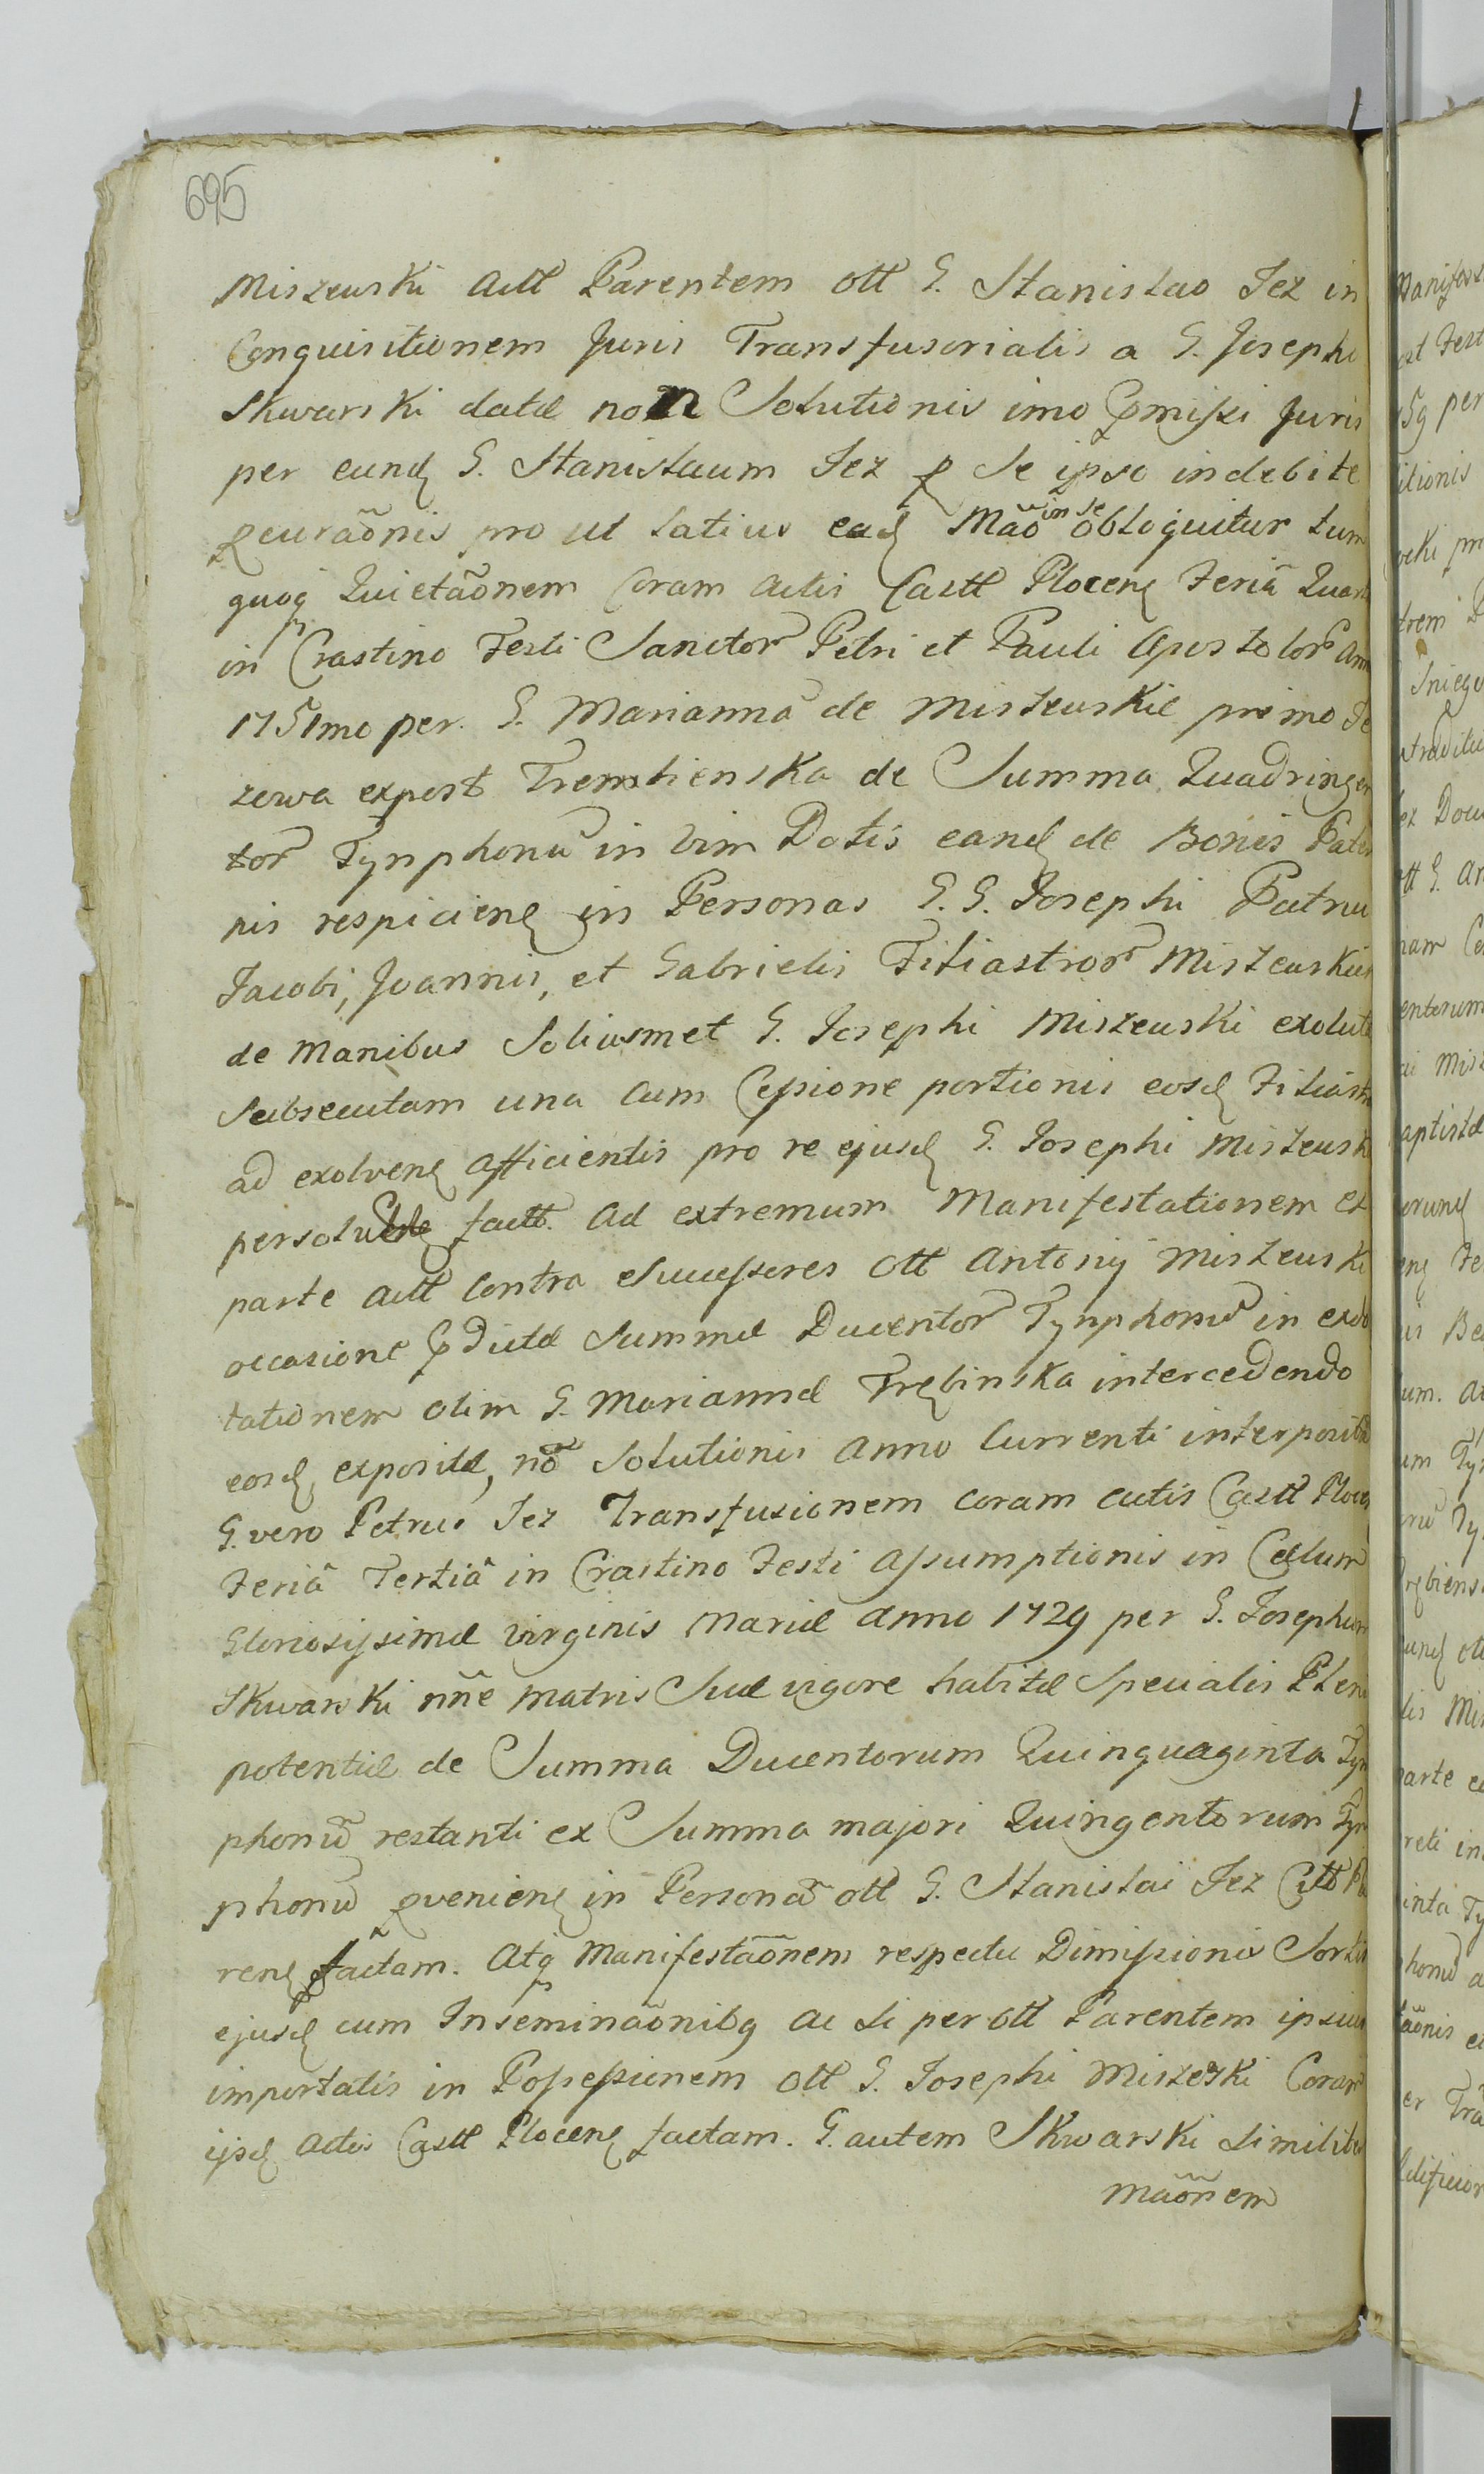 695
Miszewski Actt Parentem ott G. Stanislao Jez in
Conquisitionem Juris Transfusorialis a G. Josepho
Skwarski datæ non Solutionis imo p̄missi Juris
per eund. G. Stanislaum Jez p Se ipso indebite
pcuraõnis pro ut latius ead. Maõ in se obloquitur tum
quoq Quietaõnem Coram Actis Castt Plocen. Feriâ Quar
in Crastino Festi Sanctor Petri et Pauli Apostolor Ann
1751mo per G. Mariannã de Miszewskie primo Je
zowa expost Trembienska de Summa Quadringen
tor Tynphonũ in Vim Dotis eand. de Bonis Pater
nis respicien. in Personas G. G. Josephi Patrui
Jacobi, Joannis, et Gabrielis Filiastror Miszewskich
de Manibus Soliusmet G. Josephi Miszewski exoluta
Subsecutam una cum Cessione portionis eosd. Filiastr
ad exolven. afficientis pro re ejusd. G. Josephi Miszewski
persol factt. Ad extremum Manifestationem ex
parte actt Contra Successores Ott Antonij Miszewski
occasione p̄dictæ Summæ Ducentor Tynphonũ in exdo
tationem olim G. Mariannæ Trębinska intercedendo
eosd. expositæ, nõ Solutionis Anno Currenti interposita
G. vero Petrus Jez Transfusionem coram actis Castt Plocen
Feriâ Tertiâ in Crastino Festi Assumptionis in Cælum
Gloriosissimæ Virginis Mariæ Anno 1729 per G. Josephum
Skwarski nñe Matris Suæ vigore habitæ Specialis Pleni
potentiæ de Summa Ducentorum Quinquaginta Tyn
phonũ restanti ex Summa majori Quingentorum Tyn
phonũ pvenien. in Personã ott G. Stanislai Jez Citt Pa
ren. factam. Atq Manifestaõnem respectu Dimissionis Sortis
ejusd. cum Inseminaõnibq ac Si per ott Parentem ipsius
importatis in Possessionem Ott G. Josephi Miszewski Coram
ijsd. Actis Castt Plocen. factam. G. autem Skwarski Similiter
Maõnem